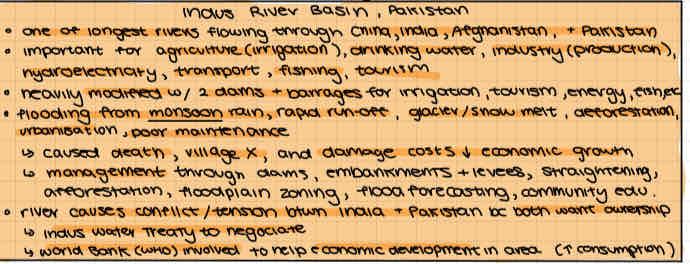 Indus River Basin, Pakistan
• one of longest rivers flowing through China, India, Afghanistan, + Pakistan
• important for agriculture (irrigation), drinking water, industry (production),
hydroelectricity, transport, fishing, tourism
• heavily modified w/ 2 dams + barrages for irrigation, tourism, energy, fisher
• flooding from monsoon rain, rapid run-off, glacier/snow melt, deforestation,
urbanisation, poor maintenance
↳ caused death, village X, and damage costs ↓ economic growth
↳ management through dams, embankments + levees, straightening,
afforestation, floodplain zoning, flood forecasting, community edu.
• river causes conflict/tension btwn India + Pakistan bc both want ownership
↳ Indus water Treaty to negotiate
↳ World Bank (WHO) involved to help economic development in area (↑ consumption)